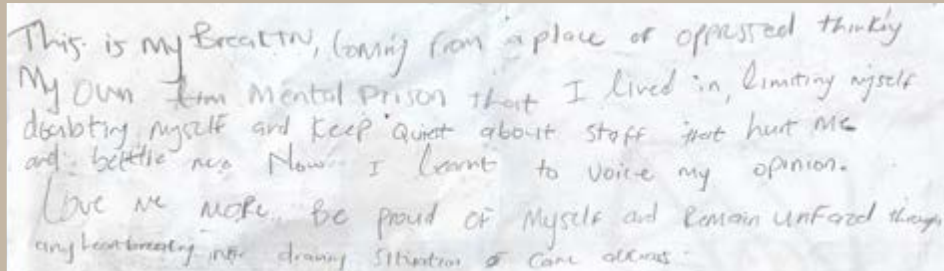 This is my Breaktru, Coming from a place of oppressed thinking
My own mental prison that I lived in, limiting myself
doubting myself and keep quiet about stuff that hurt me
and belittle me. Now I learnt to voice my opinion.
Love me more. Be proud of myself and Remain unfazed through
any heartbreaking situation